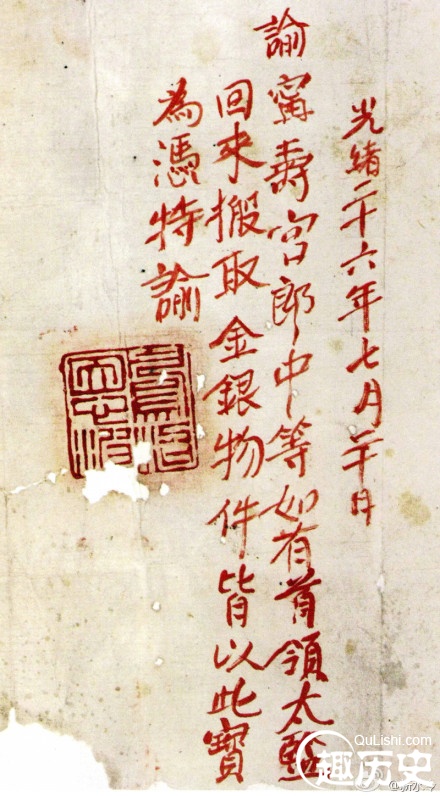 光緒二十六年七月二十日
諭甯壽宮郎中等如有首領太監
回來搬取金銀物件皆以此寶
為憑特諭
QuLishi.com
趣历史